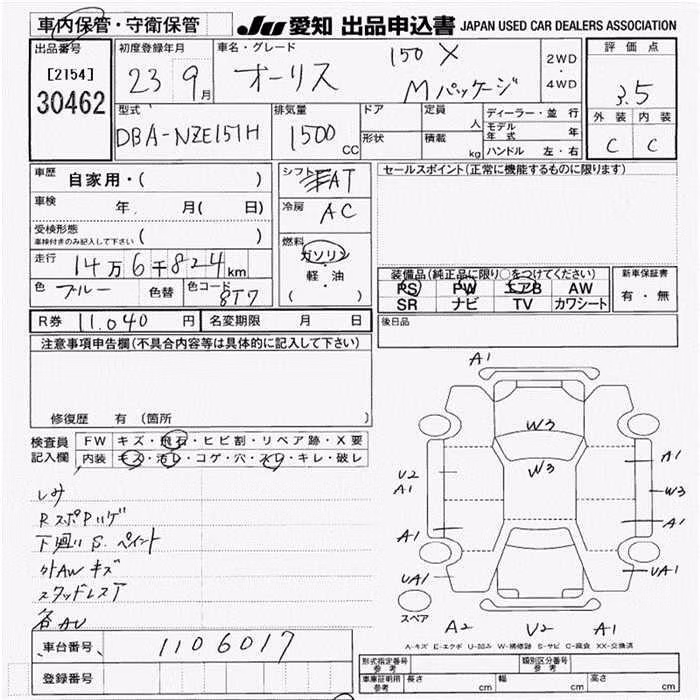 車内保管・守衛保管
JU 愛知 出品申込書 JAPAN USED CAR DEALERS ASSOCIATION
出品番号
[2154]
30462
初度登録年月
23 9月
車名・グレード
オーリス
150 X
Mパッケージ
2WD
・
4WD
評価点
3.5
外装 内装
C C
型式
DBA-NZE151H
排気量
1500 CC
ドア
形状
定員 人
積載 kg
ディーラー・並行
モデル年式 年
ハンドル 左・右
車歴 自家用・( )
車検 年 月( 日)
受検形態
車検付きのみ記入して下さい ( )
走行 14万6千824km
色 ブルー 色替 色コード 8T7
シフト AT
冷房 AC
燃料
ガソリン
・
軽・油
( )
セールスポイント(正常に機能するものに限ります)
装備品(純正品に限り○をつけてください)
PS PW エアB AW
SR ナビ TV カワシート
新車保証書
有・無
R券 11.040 円 名変期限 月 日
後日品
注意事項申告欄(不具合内容等は具体的に記入して下さい)
修復歴 有 (箇所 )
検査員
記入欄
FW キズ・飛石・ヒビ割・リペア跡・X要
内装 キズ・汚レ・コゲ・穴・スレ・キレ・破レ
しみ
RスポPハゲ
下廻りS.ペイント
外AWキズ
スタッドレスT
各AU
A1
W3
W3
U2
A1
A1
W3
A1
A1
UA1
UA1
スペア
A2 V2 A1
A-キズ E-エクボ U-凹み W-補修跡 S-サビ C-腐食 XX-交換済
車台番号 1106017
登録番号
形式指定番号
参考
類別区分番号
参考
車庫証明用
参考
長さ cm 幅 cm 高さ cm